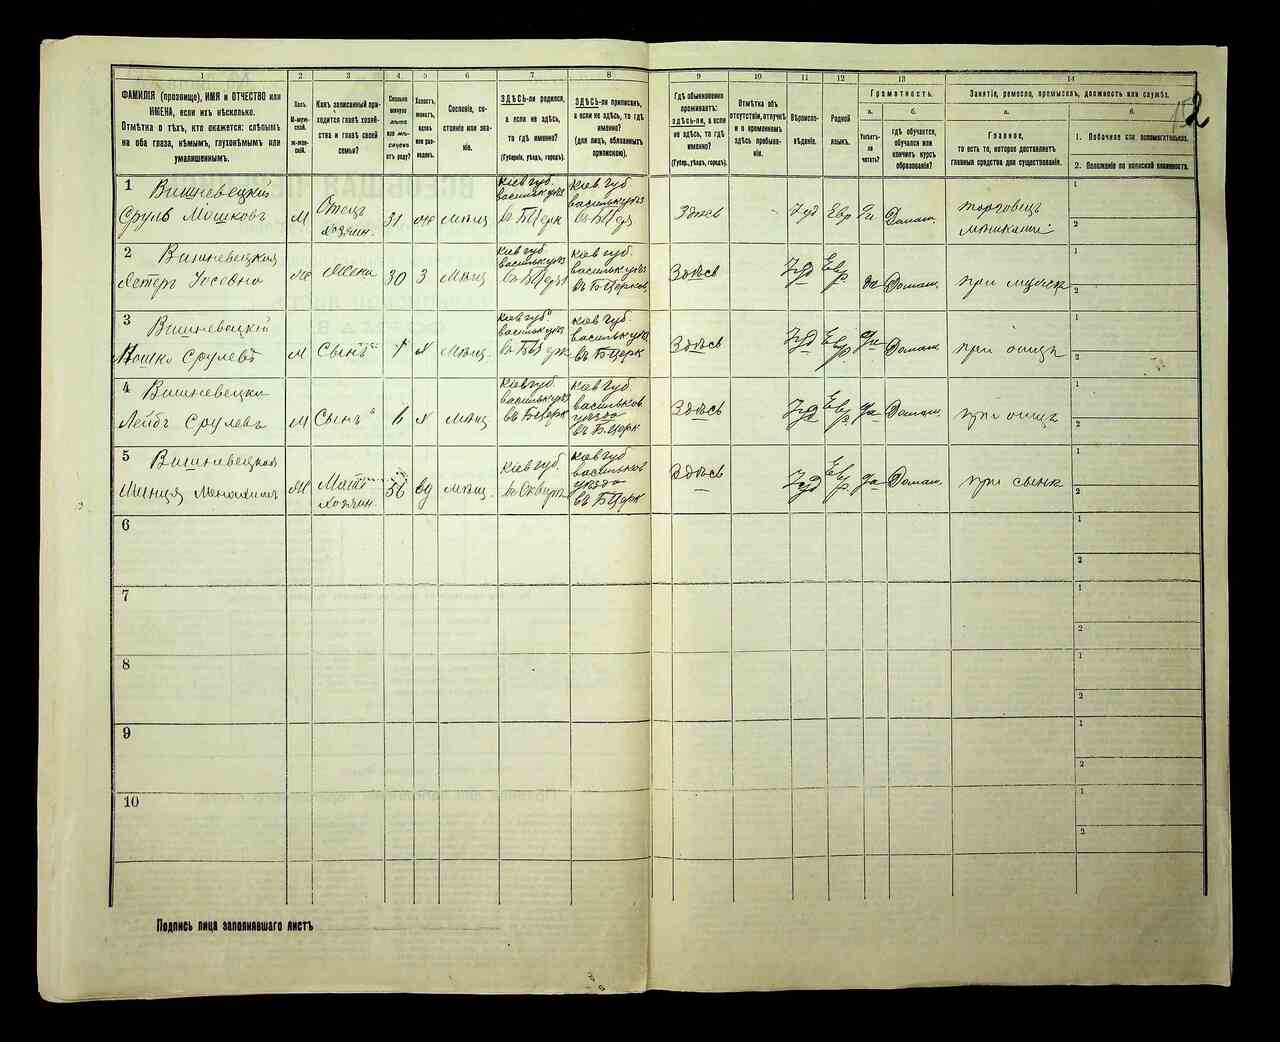 1
2
3
4
5
6
7
8
9
10
11
12
13
14
ФАМИЛІЯ (прозвище), ИМЯ и ОТЧЕСТВО или
ИМЕНА, если ихъ нѣсколько.
Отмѣтка о тѣхъ, кто окажется: слѣпымъ
на оба глаза, нѣмымъ, глухонѣмымъ или
умалишеннымъ.
Полъ.
М-муж-
ской.
Ж-жен-
скій.
Какъ записанный при-
ходится главѣ хозяй-
ства и главѣ своей
семьи?
Сколько
минуло
лѣтъ
или мѣ-
сяцевъ
отъ роду?
Холостъ,
женатъ,
вдовъ
или раз-
веденъ.
Сословіе, со-
стояніе или зва-
ніе.
ЗДѢСЬ-ли родился,
а если не здѣсь,
то гдѣ именно?
(Губернія, уѣздъ, городъ).
ЗДѢСЬ-ли приписанъ,
а если не здѣсь, то гдѣ
именно?
(для лицъ, обязанныхъ
припискою).
Гдѣ обыкновенно
проживаетъ:
здѣсь-ли, а если
не здѣсь, то гдѣ
именно?
(Губер., уѣздъ, городъ).
Отмѣтка объ
отсутствіи, отлучкѣ
и о временномъ
здѣсь пребыва-
ніи.
Вѣроиспо-
вѣданіе.
Родной
языкъ.
Грамотность.
а.
Умѣетъ-
ли
читать?
б.
гдѣ обучается,
обучался или
кончилъ курсъ
образованія?
Занятіе, ремесло, промыселъ, должность или служба.
а.
Главное,
то есть то, которое доставляетъ
главныя средства для существованія.
б.
1. Побочное или вспомогательное.
2. Положеніе по воинской повинности.
2
1 Вишневецкій
Сруль Мошковъ
М
Отецъ
хозяин.
31
же
мѣщ
Кіев губ.
васильк уѣз
въ БЦерк
Кіев губ.
васильк уѣз
въ БЦер
Здѣсь
Іуд
Евр
Да
Домаш.
торговецъ
1
2
2 Вишневецкая
Естеръ Іосевна
Ж
Жена
30
З
мѣщ
Кіев губ
васильк уѣз
въ БЦерк
Кіев губ.
васильк уѣз
въ Б Церков.
Здѣсь
Іуд
Евр
да
Домаш.
при мужѣ
1
2
3 Вишневецкій
Мошко Срулевъ
М
Сынъ
Х
мѣщ.
Кіев губ.
васильк уѣз
въ БЦерк
Кіев губ.
васильк уѣз
въ Б Церк
Здѣсь
Іуд
Евр
Да
Домаш.
при отцѣ
1
2
4 Вишневецки
Лейбъ Срулевъ
М
Сынъ
6
Х
мѣщ
Кіев губ.
васильк уѣз
въ БЦерк
Кіев губ.
васильков
уѣздо
въ Б.Церк
Здѣсь
Іуд
Евр
да
Домаш.
при отцѣ
1
2
5 Вишневецкая
Ж
Мать
хозяин.
56
вд
мѣщ.
Кіев губ.
въ Сквирѣ
Кіев губ
васильков
уѣздо
въ БЦерк
Здѣсь
Іуд
Евр.
да
Домаш.
при сынѣ
1
2
6
1
2
7
1
2
8
1
2
9
1
2
10
1
2
Подпись лица заполнявшаго листъ